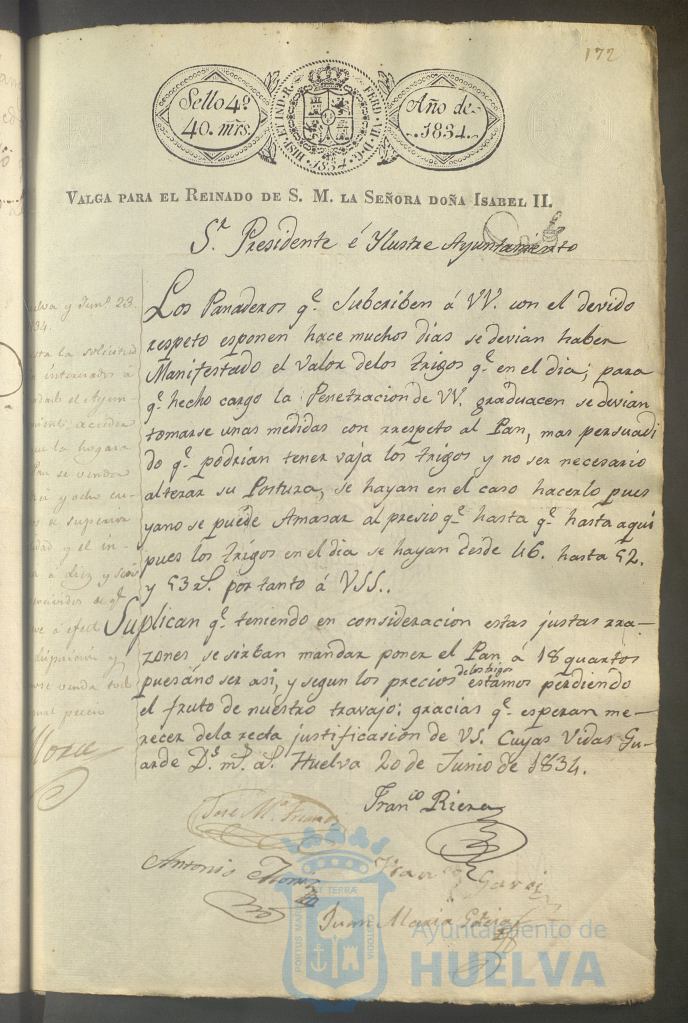 172
Sello 4º
40. mrs.
HISP. ET IND. R. FERD. VII. D. G. 1834.
Año de
1834.
VALGA PARA EL REINADO DE S. M. LA SEÑORA DOÑA ISABEL II.
Sr. Presidente é Ylustre Ayuntamiento
Los Panaderos qe. Subcriben á VV. con el devido
respeto esponen hace muchos dias se devian haber
Manifestado el valor delos trigos qe. en el dia; para
qe. hecho cargo la Penetracion de VV. graduacen se devian
tomarse unas medidas con rrespeto al Pan, mas persuadi
do qe. podrian tener vaja los trigos y no ser necesario
alterar su Postura, se hayan en el caso hacerlo pues
yano se puede Amasar al presio qe. hasta qe. hasta aqui
pues los trigos en el dia se hayan desde 46. hasta 52.
y 53 rs. por tanto á VSS..
Suplican qe. teniendo en consideracion estas justas rra-
zones se sirban mandar poner el Pan á 18 quartos
puesáno ser asi, y segun los precios delos trigos estamos perdiendo
el fruto de nuestro travajo: gracias qe. esperan me-
recer dela recta justificasion de VS. Cuyas Vidas Gu-
arde Ds. ms. as. Huelva 20 de Junio de 1834.
Franco Riera
José Ma.
Antonio
Garci
Juan Maria
Huelva y Jun. 23
834.
la solicitud
interesados á
el Ayun-
acceder
que la hogaza
Pan se venda
y ocho cu-
superior
y el in-
a diez y seis
qe.
á efect
disposicion y
se venda
precio
Mora
PORTUS MARIS ET TERRAE CUSTODIA
Ayuntamiento de
HUELVA